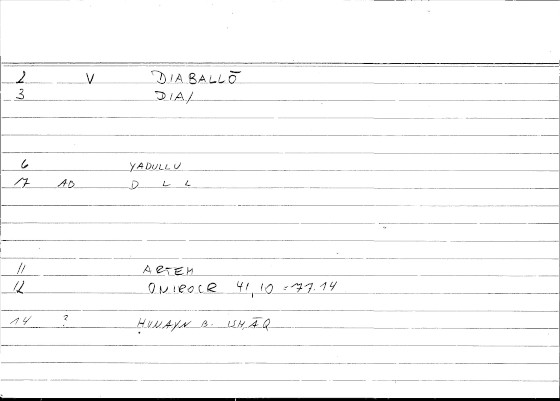 2 V DIABALLŌ
3 DIA/
6 YADULLU
17 AD D L L
11 ARTEM
12 ONIROCR 41,10 = 77.14
14 ? ḤUNAYN B. ISḤĀQ